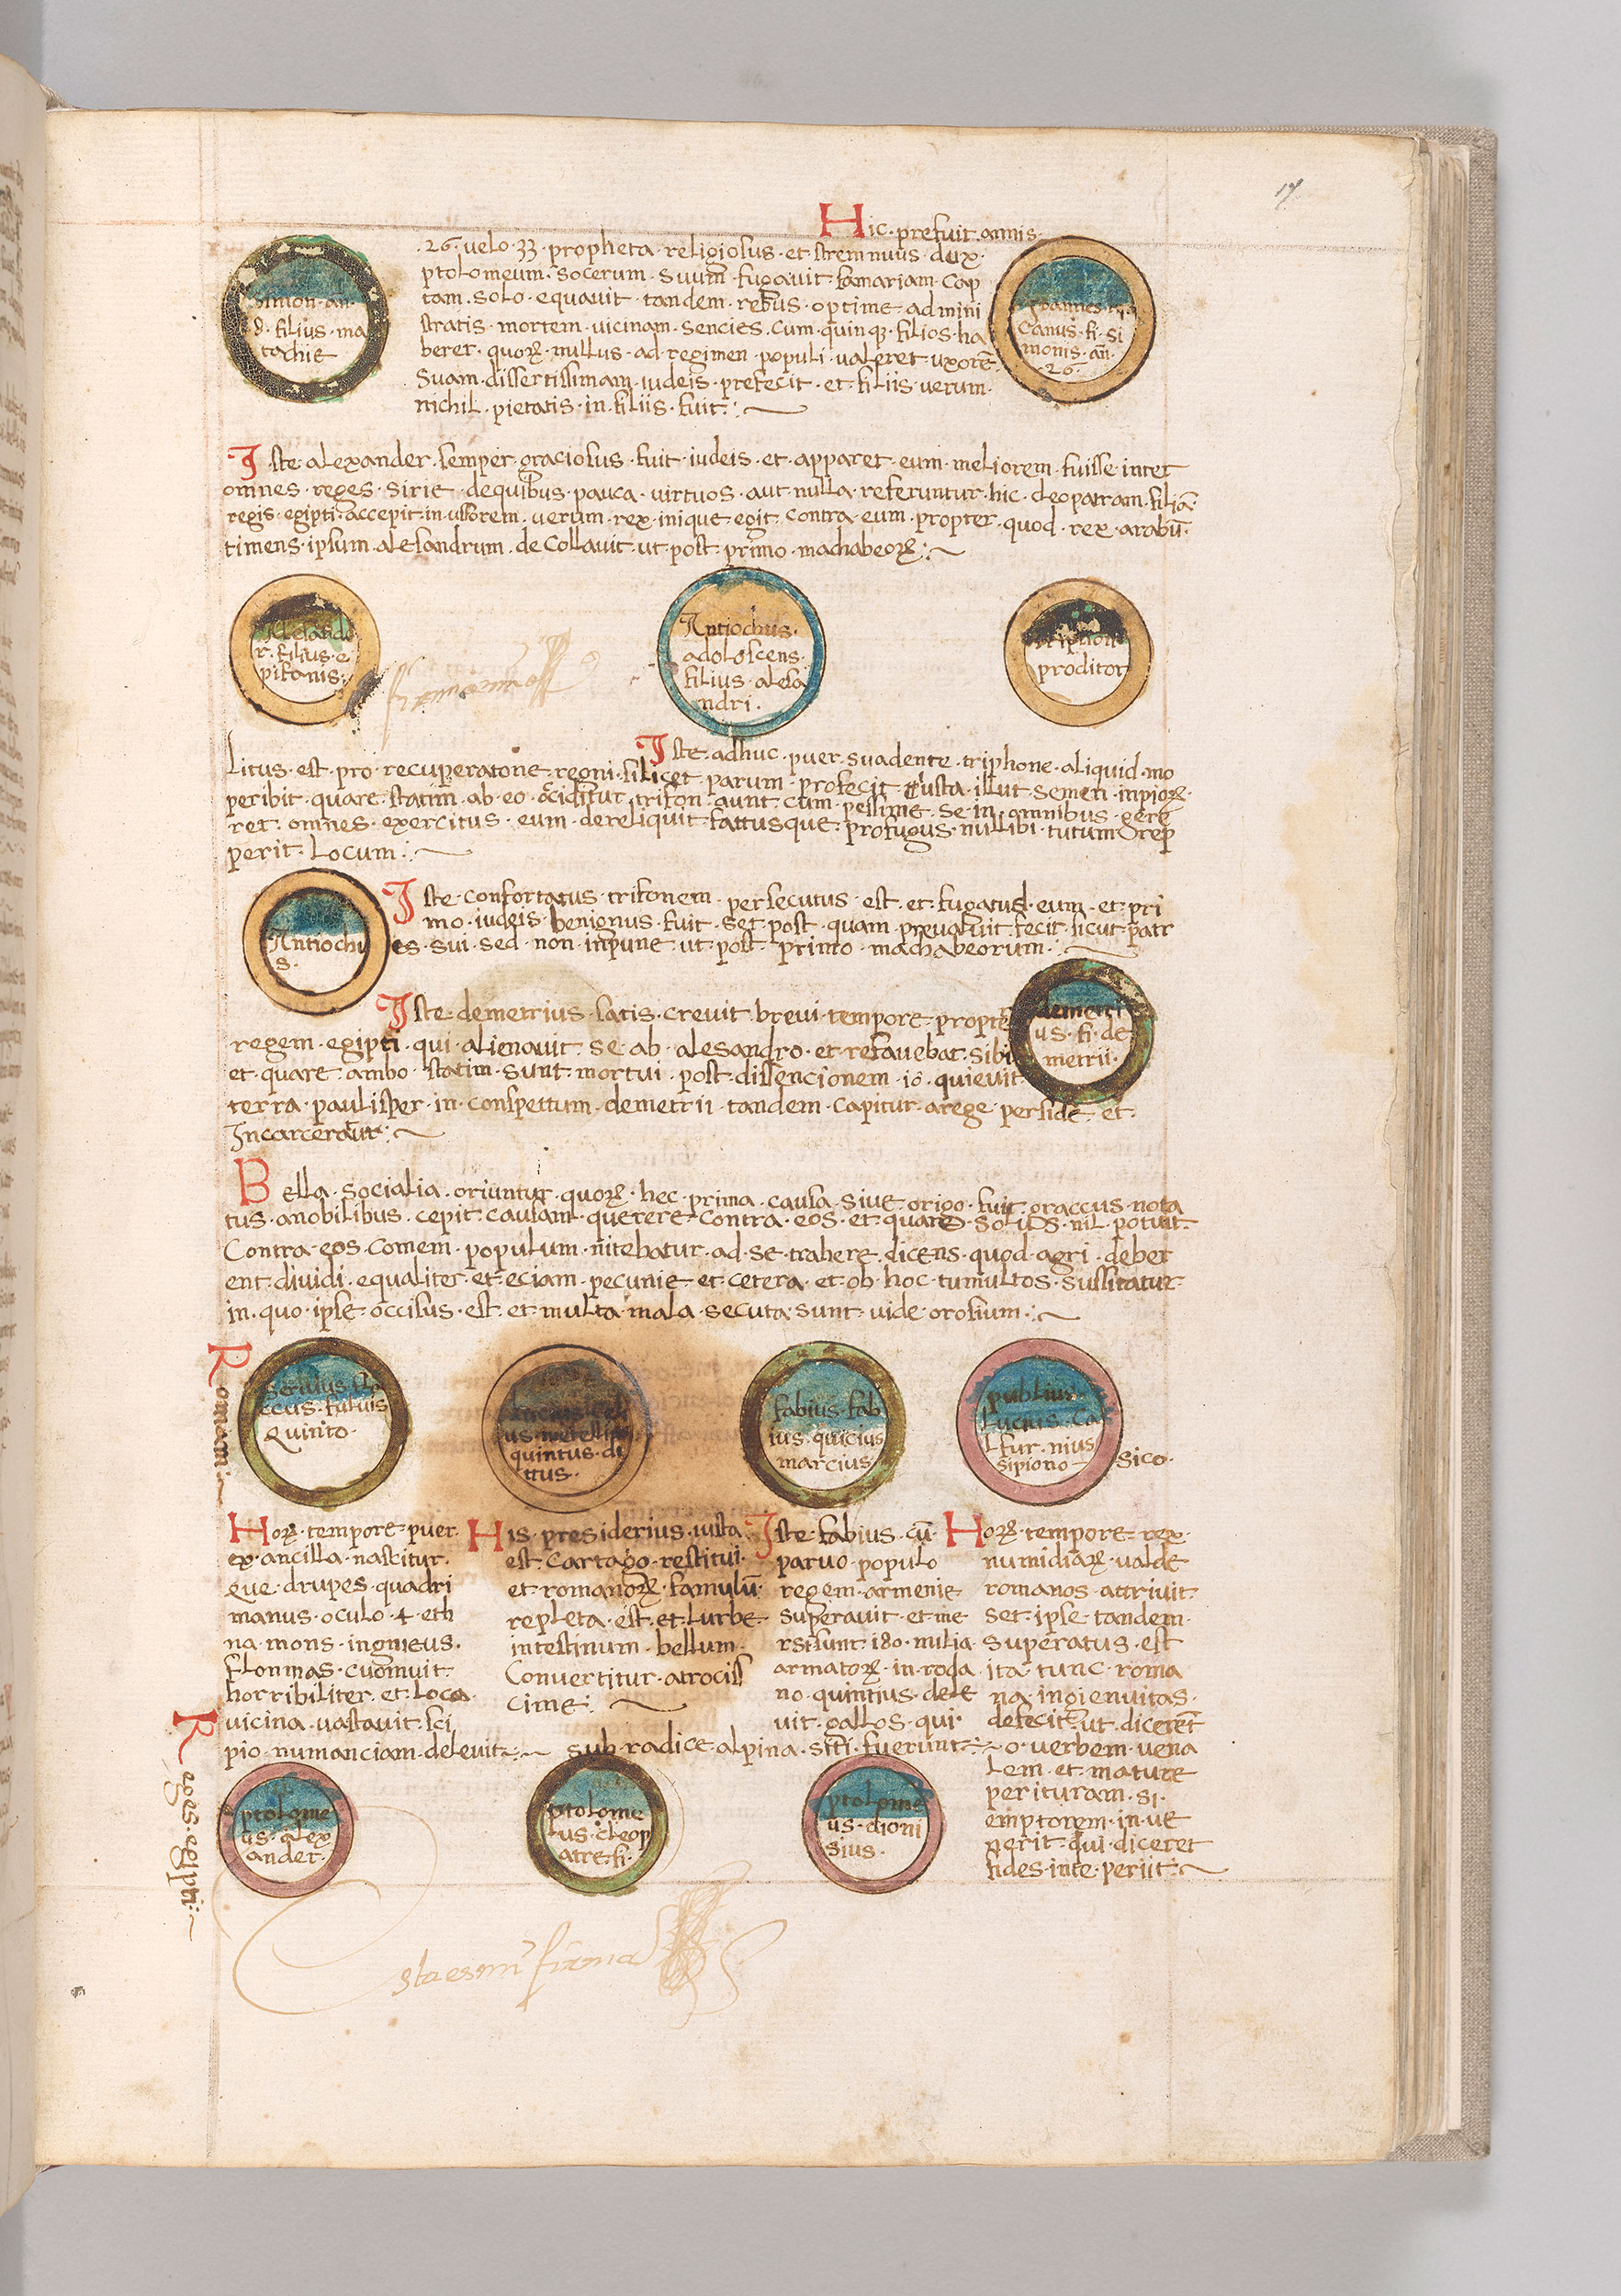 Hic · prefuit · annis ·
· 26 · velo · 33 · propheta · religiosus · et stremnuus · dux ·
ptolomeum · socerum · suum · fugavit · samariam · cap
tam · solo · equavit · tandem · rebus · optime · ad mini
stratis · mortem · vicinam · sencies · cum · quinqꝫ · filios · ha
beret · quorꝝ · nullus · ad regimen · populi · valeret · uxorē ·
suam · dissertissimam · iudeis · prefecit · et · filiis · verum ·
nichil · pietatis · in · filiis · fuit :~
Simon · an ·
8 · filius · ma
tachie
canus · fi · si
monis · añ ·
· 26 ·
Iste · alexander · semper · graciosus · fuit · iudeis · et · apparet · eum · meliorem · fuisse · inter
omnes · reges · sirie · de quibus · pauca · virtuos · aut nulla · referuntur · hic · cleopatram · filiā ·
regis · egipti · accepit · in ussorem · verum · rex · inique egit · contra · eum · propter · quod · rex · arabū ·
timens · ipsum · alesandrum · de collavit · ut · post · primo · machabeorꝝ :~
Alesande
r · filius · e
pifanis ·
Antiochus ·
adolescens ·
filius · alesa
ndri ·
triphon
proditor
Iste · adhuc · puer · suadente · triphone · aliquid · mo
litus · est · pro · recuperatone · regni · silicet · parum · profecit · iusta · illut semen · inpiorꝝ ·
peribit · quare · statim · ab · eo · occiditur · trifon · aunt · cum · pessime · se · in · omnibus · gere
ret · omnes · exercitus · eum · dereliquit · fattusque · profugus · nullibi · tutum · rep
perit · locum :~
Antiochu
s ·
Iste · confortatus · trifonem · persecutus · est · et · fugatus · eum · et · pri
mo · iudeis · benignus · fuit · set · post · quam · prevaluit · fecit · sicut · patr
es · sui · sed · non · inpune · ut · post · primo · machabeorum :~
Iste · demetrius · satis · crevit · brevi · tempore · propter
regem · egipti · qui · alienavit · se · ab · alesandro · et · refavebat · sibi
et · quare · ambo · statim · sunt · mortui · post · dissencionem · iō · quievit
terra · paulisper · in · conspettum · demetrii · tandem · capitur · a rege · perside · et ·
Incarceratur :~
demetri
us · fi · de
metrii ·
Bella · socialia · oriuntur · quorꝝ · hec · prima · causa · sive · origo · fuit · graccus · nota
tus · a nobilibus · cepit · causam · querere · contra · eos · et · quare · solus · nil · potuit ·
Contra · eos · comem · populum · nitebatur · ad · se · trahere · dicens · quod · agri · deber
ent · dividi · equaliter · et · eciam · pecunie · et · cetera · et · ob · hoc · tumultos · sussitatur ·
in · quo · ipse · occisus · est · et · multa · mala · secuta · sunt · vide · orosium :~
Romani :~
Servius · fla
ccus · fulvis
quinto ·
us · metellus
quintus · di
ttus ·
fabius · fab
ius · quicius
marcius ·
publius ·
lucius · ca
lfur · nius
sipiono
sico ·
Horꝝ · tempore · puer
ex · ancilla · nascitur ·
que · drupes · quadri
manus · oculo · 4 · eth
na · mons · ingneus ·
flonmas · evomuit
horribiliter · et · loca ·
vicina · vastavit · sci
pio · numanciam · delevit :~
His · presiderius · iusta
est · cartago · restitui ·
et · romanorꝝ · famulū ·
repleta · est · et · lurbe ·
intestinum · bellum ·
convertitur · atrocis
cime :~
Iste · fabius · cū ·
parvo · populo
regem · armenie
superavit · et me
rsi sunt · 180 · milia
armatorꝝ · in · roda
no · quintius · dele
vit · gallos · qui ·
sub · radice · alpina · siti · fuerunt :~
Horꝝ · tempore · rex ·
numidiarꝝ · valde
romanos · attrivit
set · ipse · tandem ·
superatus · est
ita · tunc · roma
na · ingienuitas ·
defecit · ut · dicerēt
o · verbem · vena
lem · et · mature
perituram · si ·
emptorem · in · ve
nerit · qui · diceret
fides · inte · periit :~
Reges · egipti :~
ptolome
us · alex
ander ·
ptolome
us · cleop
atre · fi ·
ptolome
us · dioni
sius ·
sta es mi firma